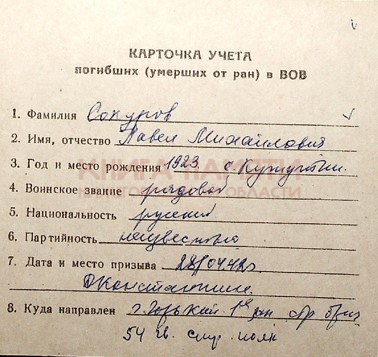 КАРТОЧКА УЧЕТА
погибших (умерших от ран) в ВОВ
1. Фамилия Сокуров
2. Имя, отчество Павел Михайлович
3. Год и место рождения 1923 с.
КНИГА ПАМЯТИ
4. Воинское звание рядовой
ОБЛАСТИ
5. Национальность русский
6. Партийность неизвестно
7. Дата и место призыва
8. Куда направлен г. Горький
54 полк